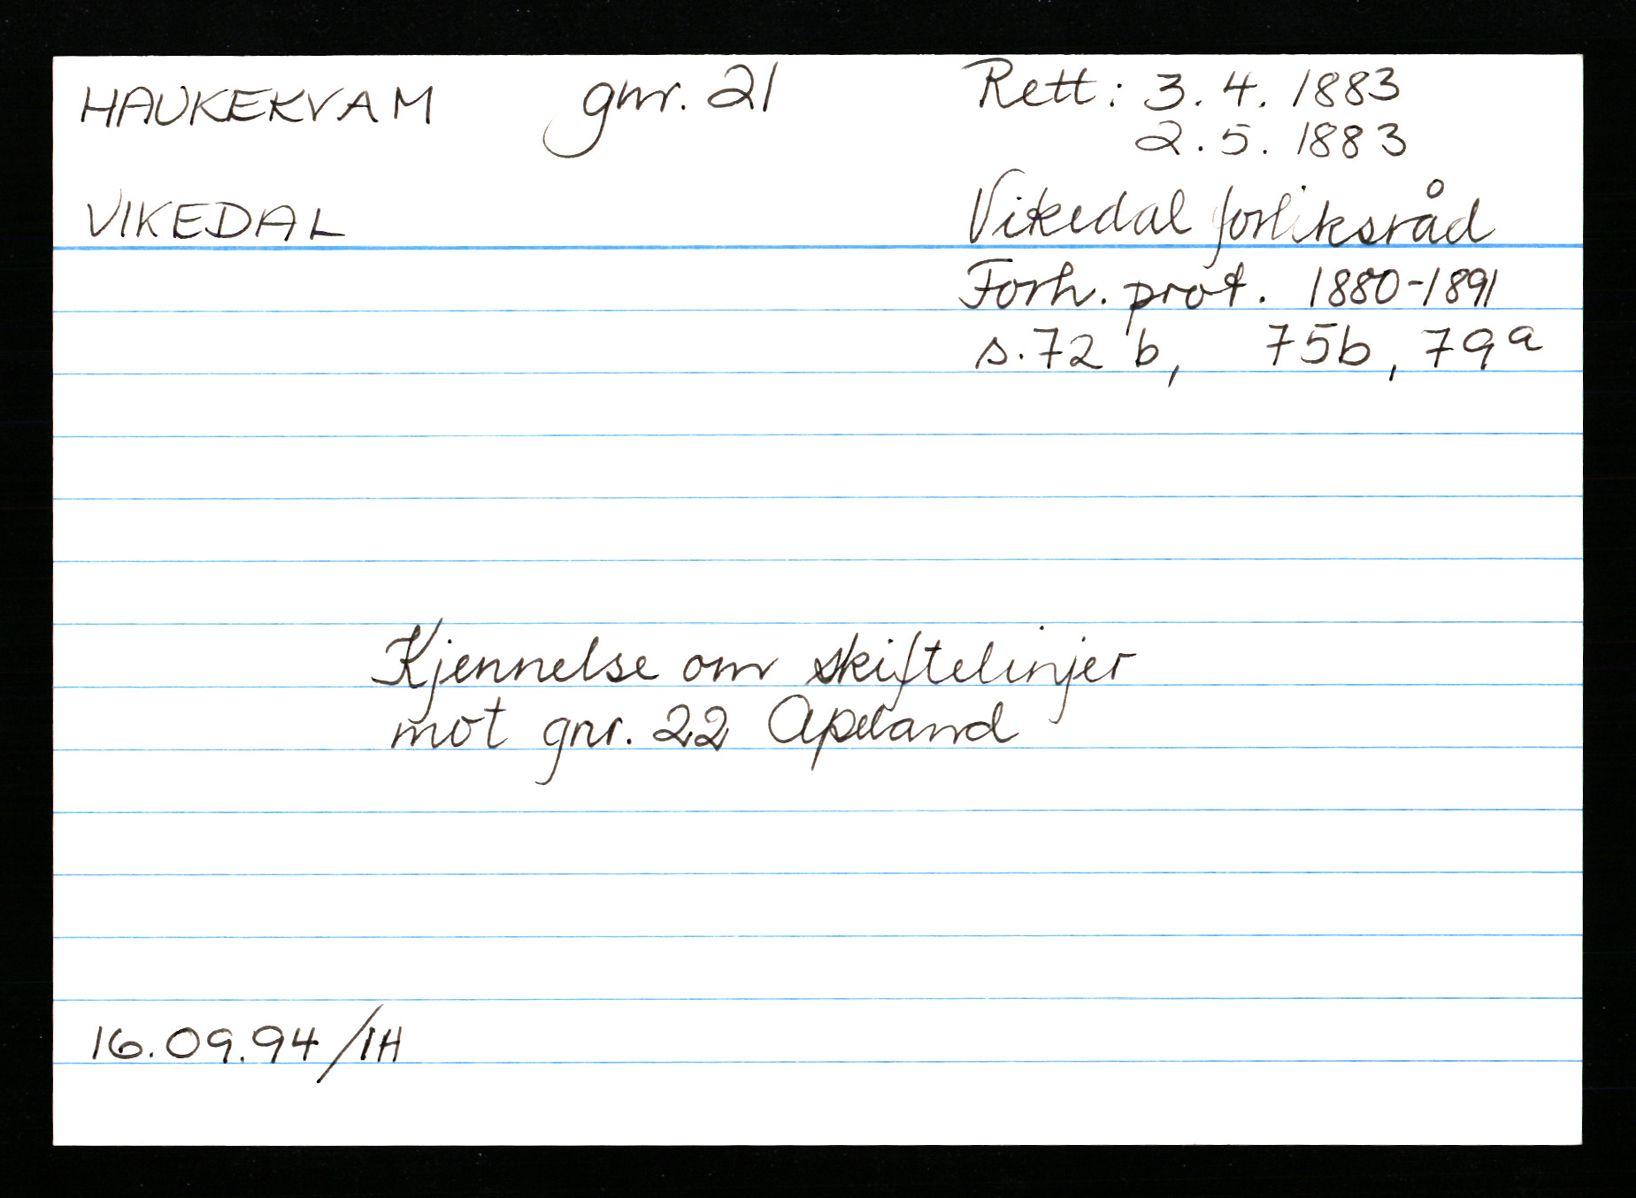 HAUKEKVAM gnr. 21 Rett: 3.4.1883
2.5.1883
VIKEDAL Vikedal forliksråd
Forh. prot. 1880-1891
s.72 b, 75b, 79a
Kjennelse om skiftelinjer
mot gnr. 22 Apeland
16.09.94/IH